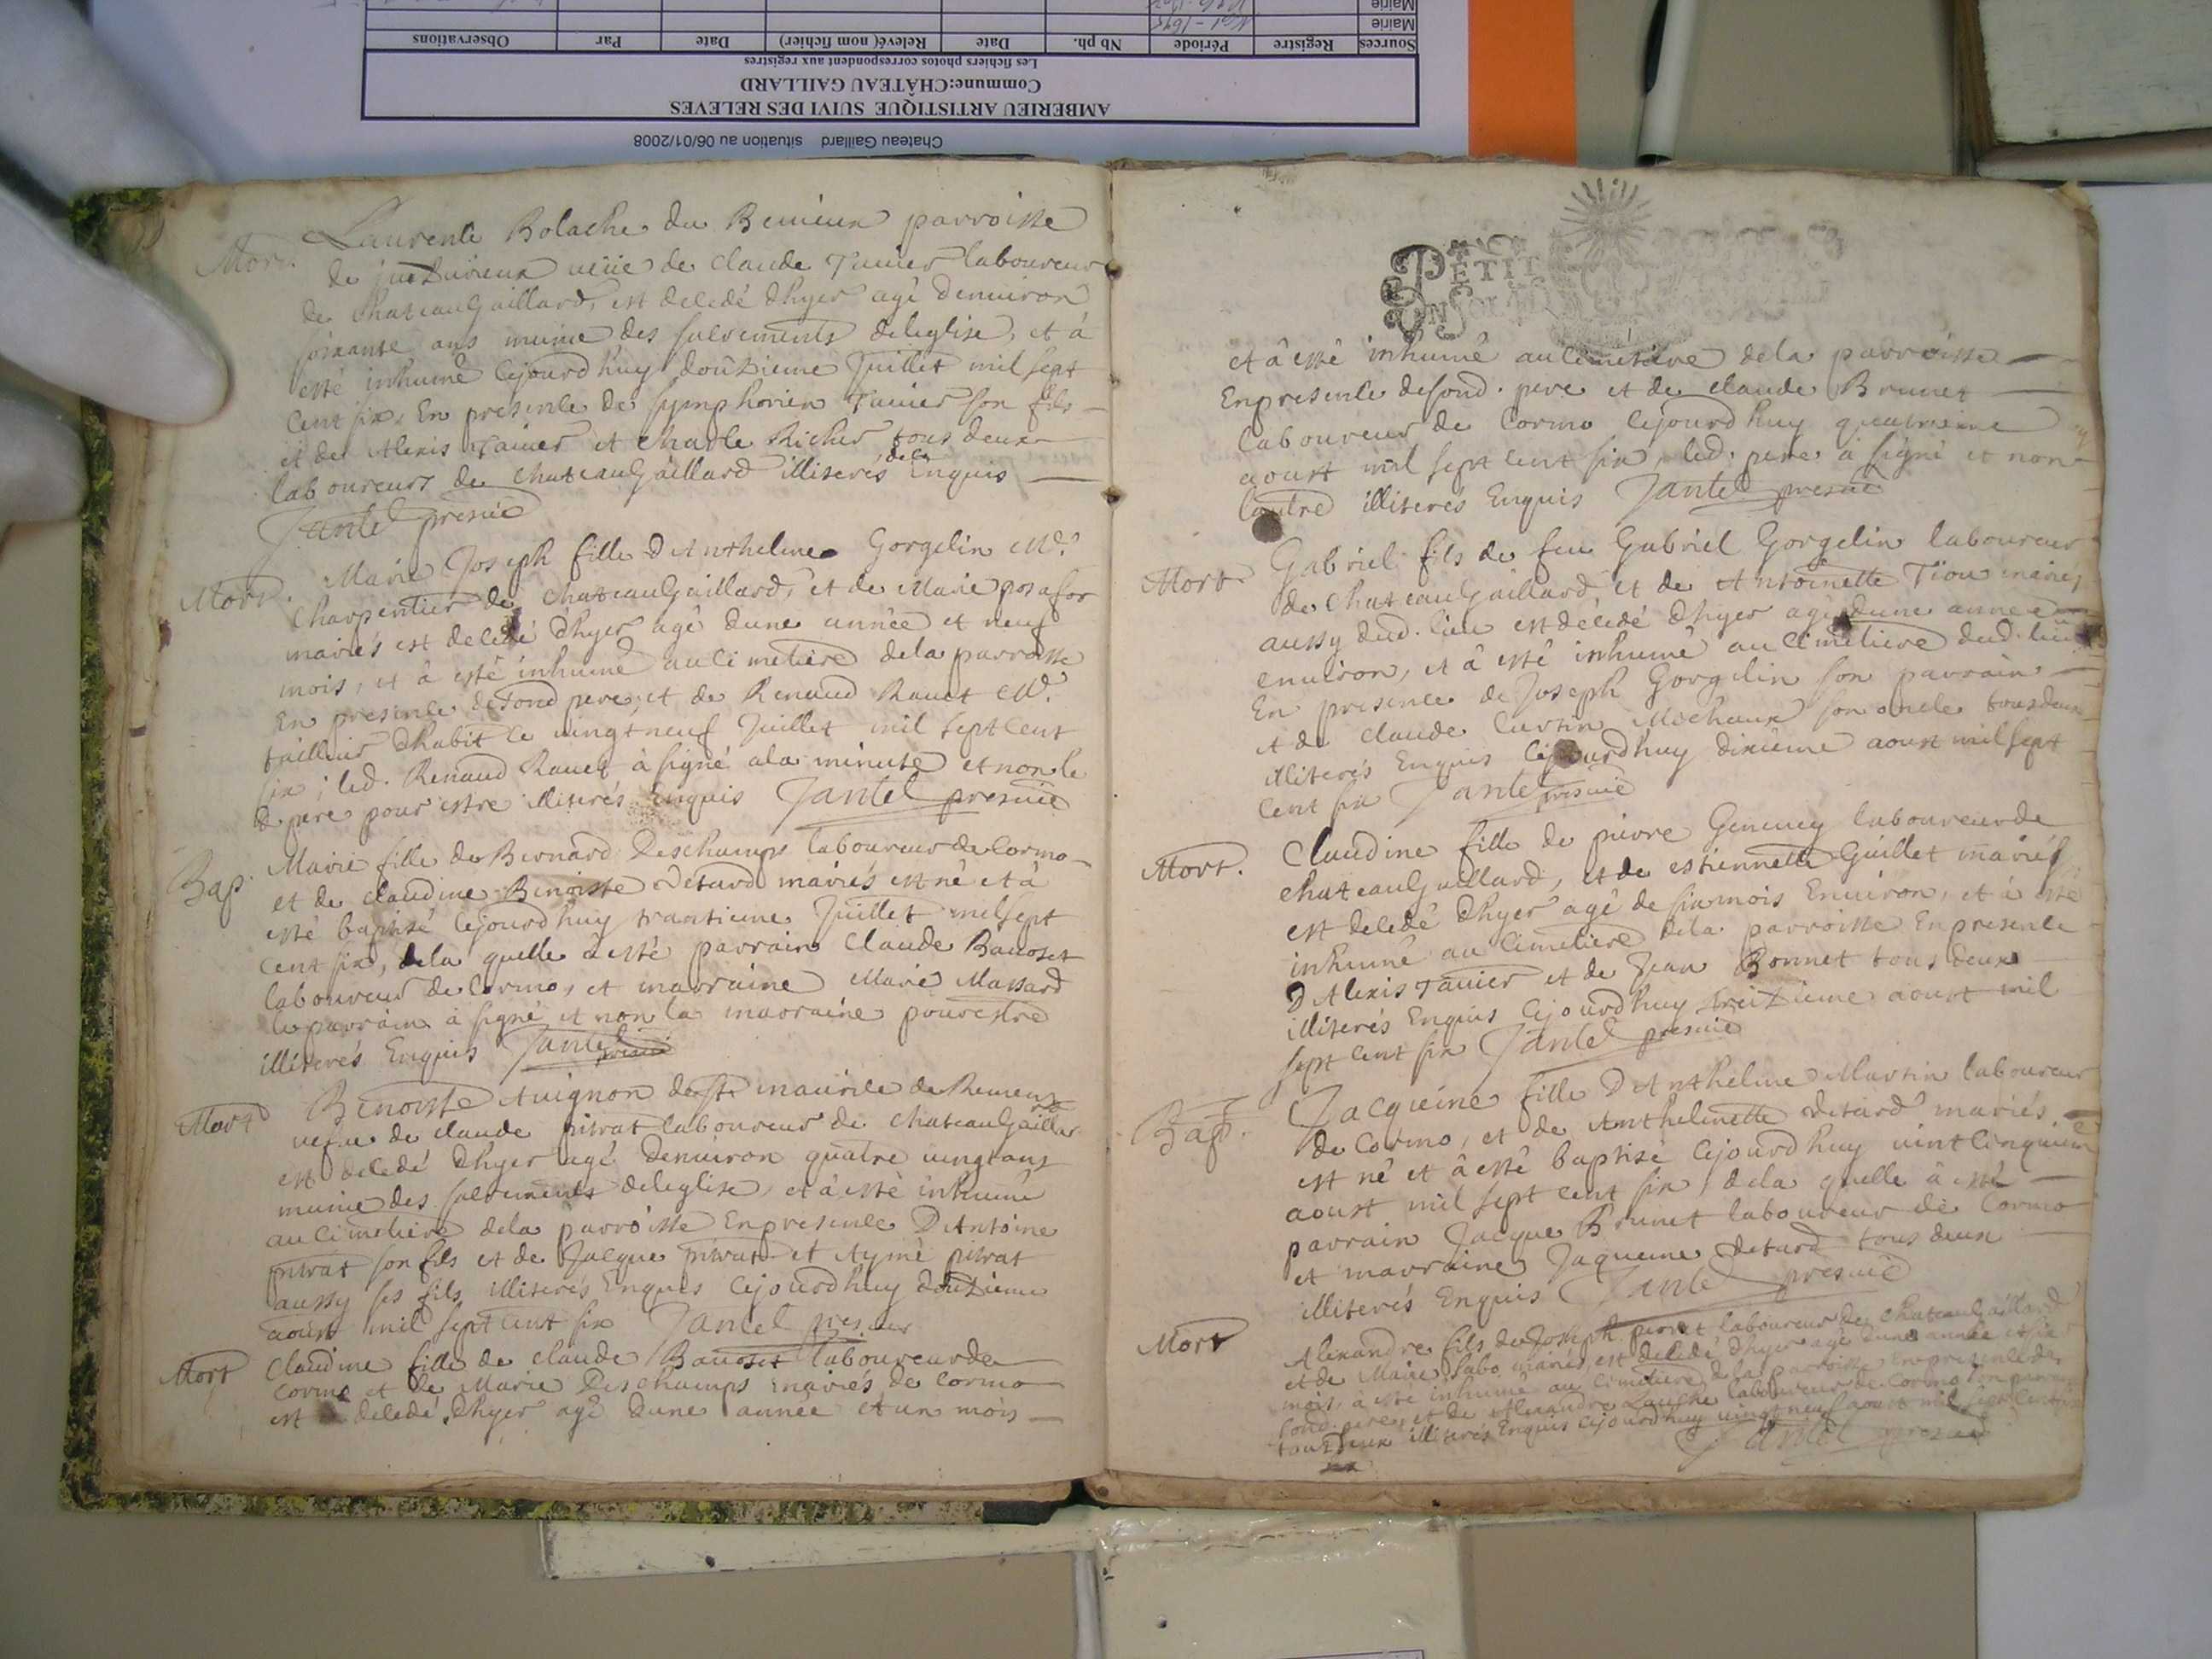 Chateau Gaillard situation au 06/01/2008
AMBERIEU ARTISTIQUE SUIVI DES RELEVES
Commune:CHÂTEAU GAILLARD
Les fichiers photos correspondent aux registres
Sources Registre Période Nb ph. Date Relevé( nom fichier) Date Par Observations
Mairie
Mairie
Mort. Laurence Bolache du parroisse
de veüe de claude Tanier laboureur
de ChateauGaillard, est decedé dhyer agé denuiron
soixante ans munie des sacrements de leglise, et à
esté inhumé cejourdhuy douzieme Juillet mil sept
cent six, En presence de symphorien Tanier son fils
et de Alexis Tanier et Charle Richer tous deux
laboureurs de chateauGaillard illiterés de ce Enquis
Jantel presuie
Mort. Marie Joseph fille dAnthelme Gorgelin Me.
Charpentier de chateauGaillard, et de Marie
mariés est decedé dhyer agé dune année et neuf
mois, et à esté inhumé au cimetiere dela parroisse
En presence de sond pere, et de Renaud Rauet Me.
tailleur dhabit le vingt neuf Juillet mil sept cent
six; led. Renaud Rauet à signé ala minute et non le
d. pere pour estre illiterés Enquis Jantel presuie
Bap. Marie fille de Bernard Deschamps laboureur de Cormo
et de claudine Benoiste detard mariés est né et à
esté baptisé cejourdhuy trantieme Juillet mil sept
cent six, dela quelle à esté parrain Claude Bauoset
laboureur de Cormo, et marraine Marie Massard
le parrain à signé et non la marraine pour estre
illiterés Enquis Jantel presuie
Mort Benoiste Auignon de St. maurice de Remens
vefue de claude priuat laboureur de chateauGaillard
est decedé dhyer agé denuiron quatre uingt ans
munie des sacrements de leglise, et à esté inhumé
au cimetiere dela parroisse En presence DAntoine
priuat son fils et de Jacque priuat et Aymé priuat
aussy ses fils illiterés Enquis cejourdhuy douzieme
aoust mil sept cent six Jantel presuie
Mort Claudine fille de claude Bauoset laboureur de
Cormo et de Marie Deschamps mariés de Cormo
est decedé dhyer agé dune année et un mois
PETIT
et à esté inhumé au cimetiere dela parroisse
En presence de sond. pere et de claude Brunet
laboureur de Cormo cejourdhuy quatrieme
aoust mil sept cent six, led. pere à signé et non
lautre illiterés Enquis Jantel presuie
Mort Gabriel fils de feu Gabriel Gorgelin laboureur
de chateauGaillard, et de Antoinette Tiou mariés
aussy dud. lieu est decedé dhyer agé dune année
enuiron, et à esté inhumé au Cimetiere dud. lieu
En presence de Joseph Gorgelin son parrain
et de claude Curtin son oncle tous deux
illiterés Enquis cejourdhuy dixieme aoust mil sept
cent six Jantel presuie
Mort. Claudine fille de pierre Geneuey laboureur de
chateauGaillard, et de estiennette Guillet mariés
est decedé dhyer agé de six mois Enuiron, et à esté
inhumé au Cimetiere dela parroisse En presence
DAlexis Tanier et de Jean Bonnet tous deux
illiterés Enquis cejourdhuy treizieme aoust mil
sept cent six Jantel presuie
Bap. Jacqueine fille DAnthelme Martin laboureur
de Cormo, et de Anthelmette detard mariés
est né et à esté baptisé cejourdhuy vint cinquieme
aoust mil sept cent six, dela quelle à esté
parrain Jacque Brunet laboureur de Cormo
et marraine Jaqueme detard tous deux
illiterés Enquis Jantel presuie
Mort Alexandre fils de Joseph laboureur de chateauGaillard
et de Marie mariés est decedé dhyer agé dune année et six
mois, à esté inhumé au cimetiere dela parroisse En presence de
sond. pere, et de Alexandre laboureur de Cormo
tous deux illiterés Enquis cejourdhuy uingt neuf aoust mil sept cent six
Jantel presuie